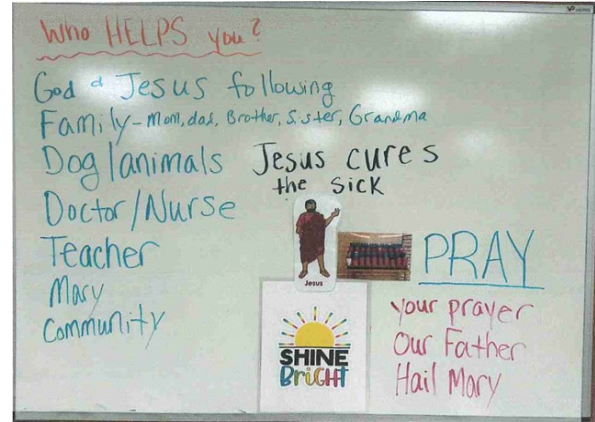 Who HELPS you?
God & Jesus following
Family - Mom, dad, Brother, Sister, Grandma
Dog/animals
Doctor/Nurse
Teacher
Mary
Community
Jesus cures
the sick
Jesus
SHINE
BRiGHT
PRAY
your prayer
Our Father
Hail Mary